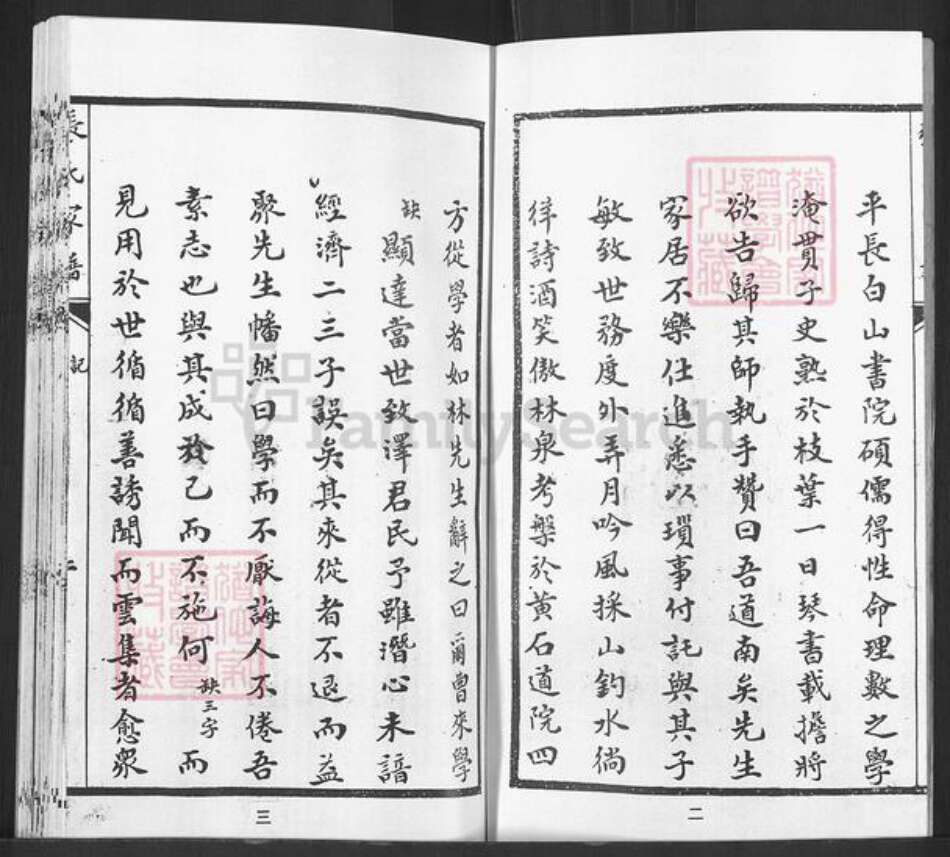 平長白山書院碩儒得性命理數之學
淹貫子史熟於枝葉一日琴書載擔將
欲告歸其師執手贊曰吾道南矣先生
家居不樂仕進悉以瑣事付託與其子
敏致世務度外弄月吟風採山釣水徜
徉詩酒笑傲林泉考槃於黃石道院四
二
方從學者如林先生辭之曰爾曹來學
缺顯達當世致澤君民予雖潛心未諳
經濟二三子誤矣其來從者不退而益
聚先生幡然曰學而不厭誨人不倦吾
素志也與其成發己而不施何缺三字而
見用於世循循善誘聞而雲集者愈眾
長氏家譜
記
三
FamilySearch